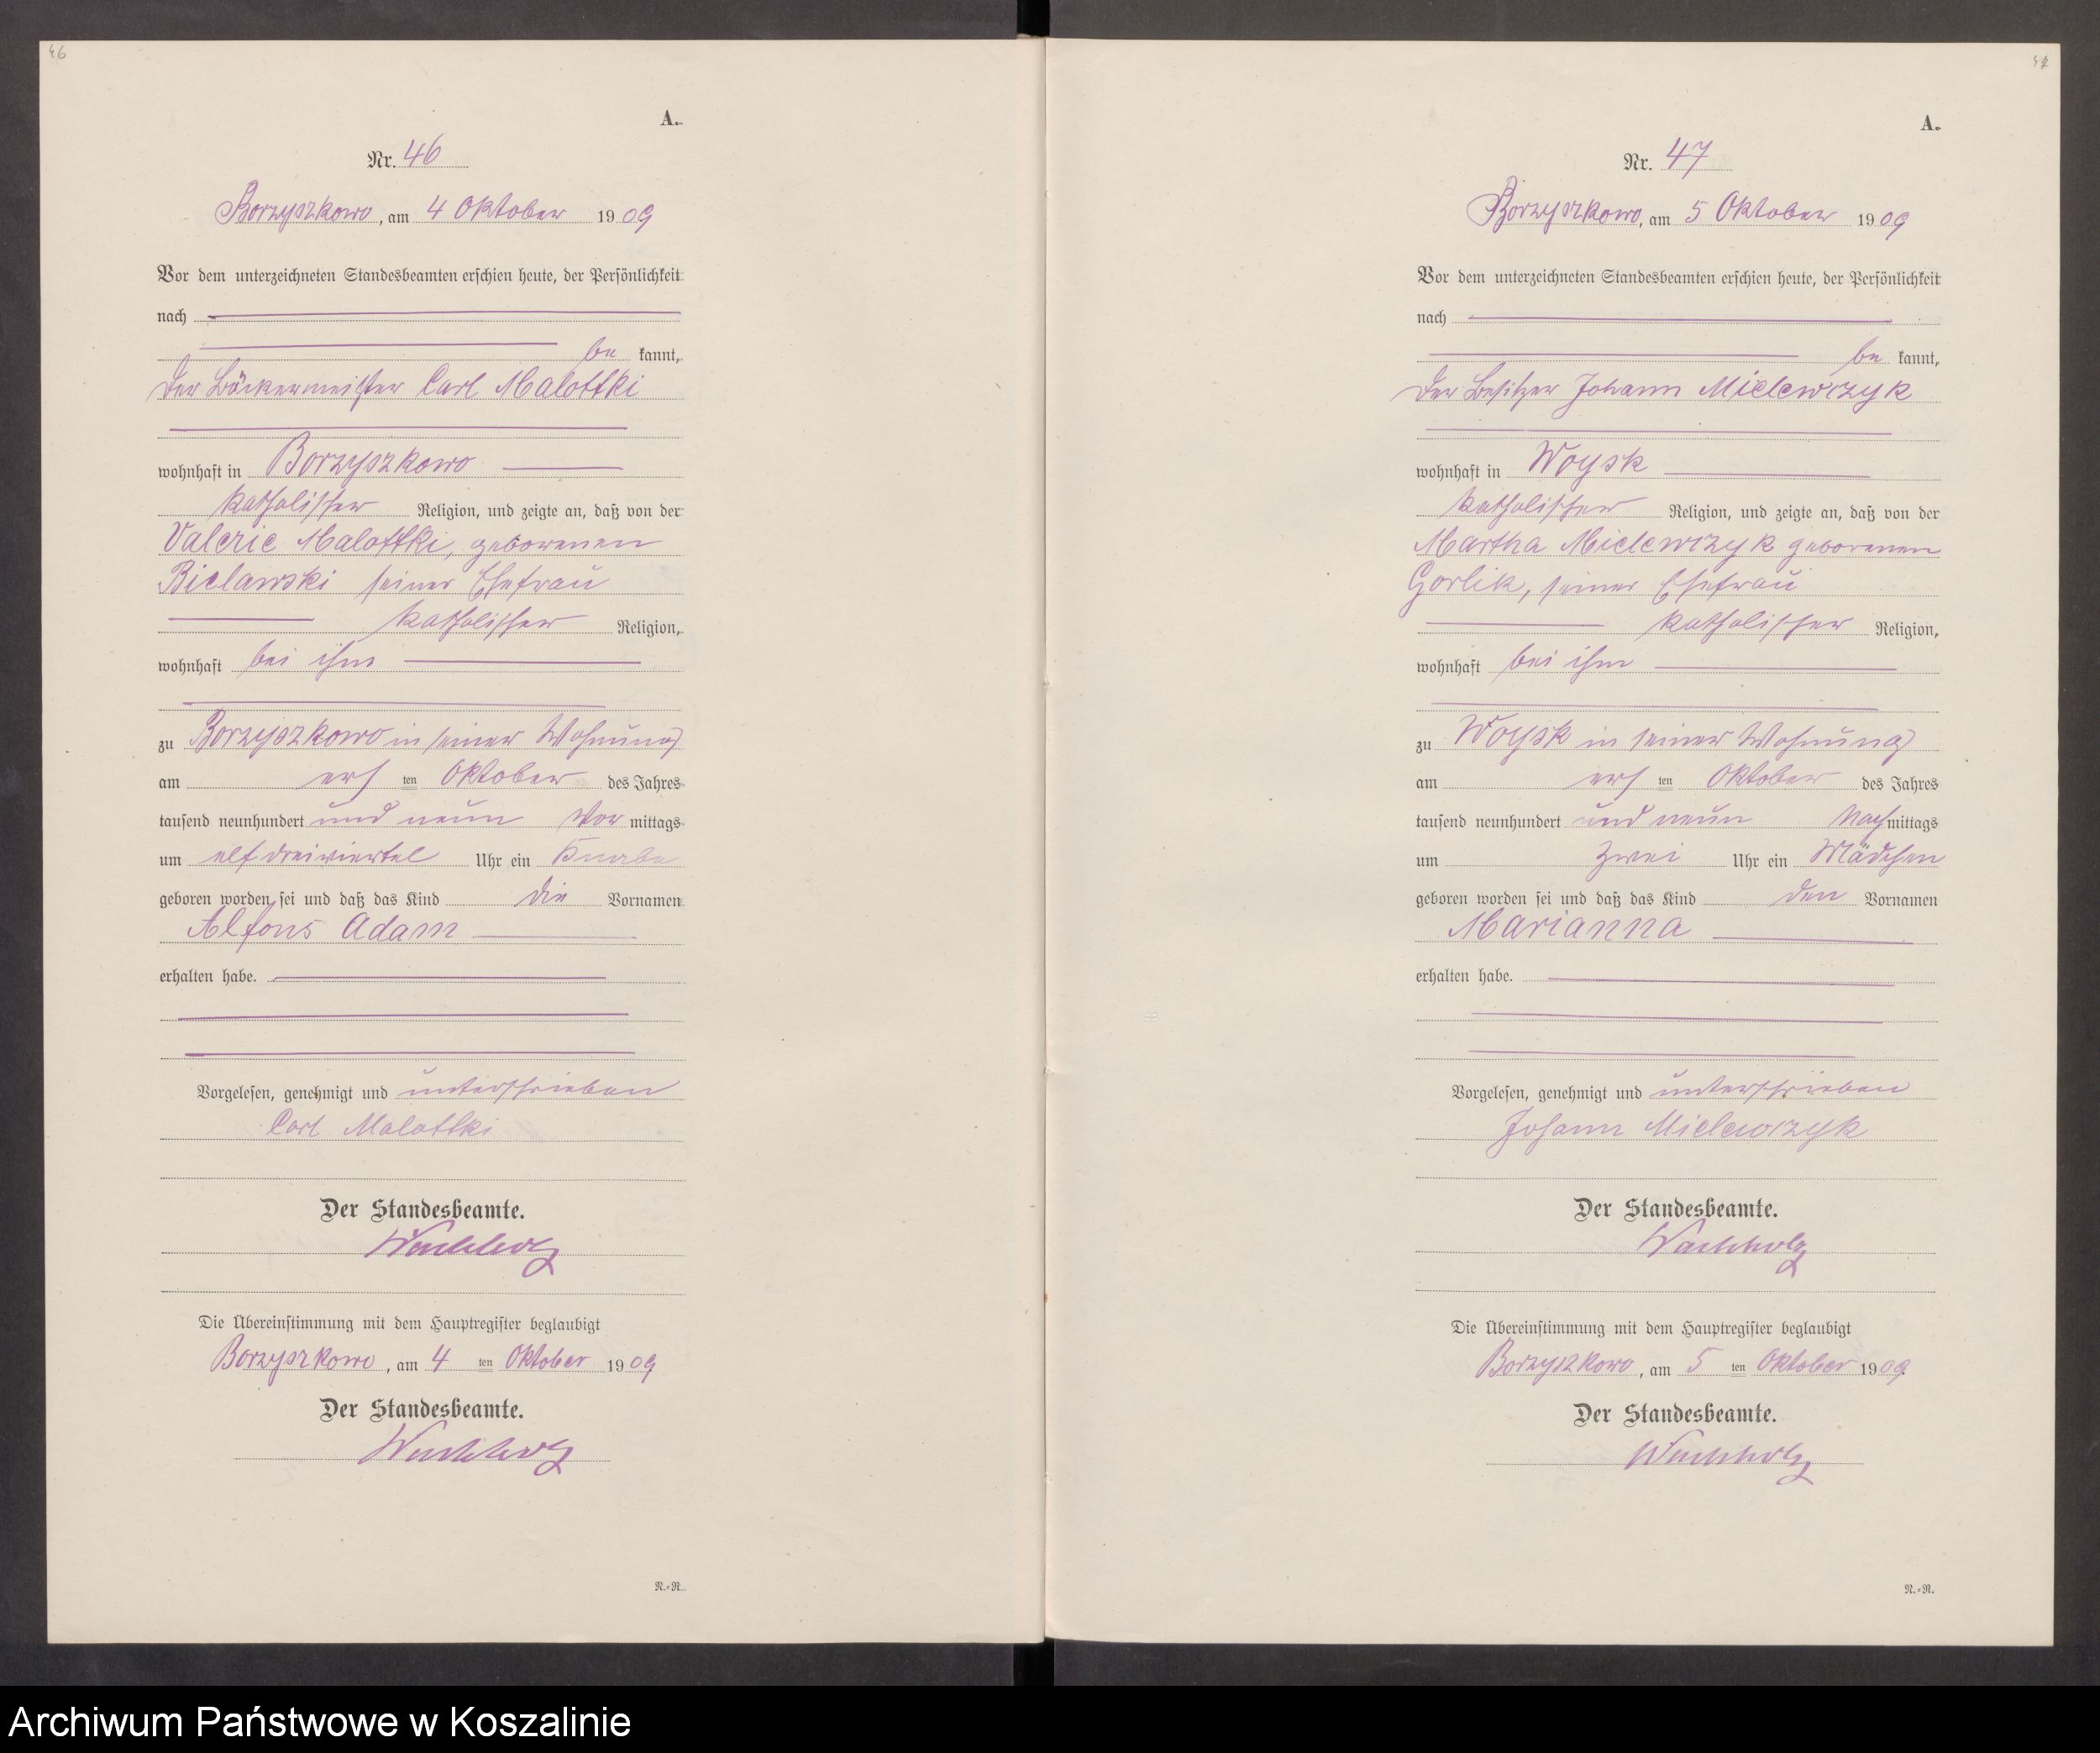 46
A.
Nr. 46
Borzyszkowo, am 4 Oktober 1909
Vor dem unterzeichneten Standesbeamten erschien heute, der Persönlichkeit
nach
be kannt,
der Bäckermeister Carl Malottki
wohnhaft in Borzyszkowo
katholischer Religion, und zeigte an, daß von der
Valerie Malottki, geborenen
Bielawski seiner Ehefrau
katholischer Religion,
wohnhaft bei ihm
zu Borzyszkowo in seiner Wohnung
am ersten Oktober des Jahres
tausend neunhundert und neun Vor mittags
um elf dreiviertel Uhr ein Knabe
geboren worden sei und daß das Kind die Vornamen
Alfons Adam
erhalten habe.
Vorgelesen, genehmigt und unterschrieben
Carl Malottki
Der Standesbeamte.
Wachholz
Die Übereinstimmung mit dem Hauptregister beglaubigt
Borzyszkowo, am 4 ten Oktober 1909
Der Standesbeamte.
Wachholz
N.-R.
47
A.
Nr. 47
Borzyszkowo, am 5 Oktober 1909
Vor dem unterzeichneten Standesbeamten erschien heute, der Persönlichkeit
nach
be kannt,
der Besitzer Johann Mielewczyk
wohnhaft in Woysk
katholischer Religion, und zeigte an, daß von der
Martha Mielewczyk geborenen
Gorlik, seiner Ehefrau
katholischer Religion,
wohnhaft bei ihm
zu Woysk in seiner Wohnung
am ersten Oktober des Jahres
tausend neunhundert und neun Nach mittags
um zwei Uhr ein Mädchen
geboren worden sei und daß das Kind den Vornamen
Marianna
erhalten habe.
Vorgelesen, genehmigt und unterschrieben
Johann Mielewczyk
Der Standesbeamte.
Wachholz
Die Übereinstimmung mit dem Hauptregister beglaubigt
Borzyszkowo, am 5 ten Oktober 1909
Der Standesbeamte.
Wachholz
N.-R.
Archiwum Państwowe w Koszalinie